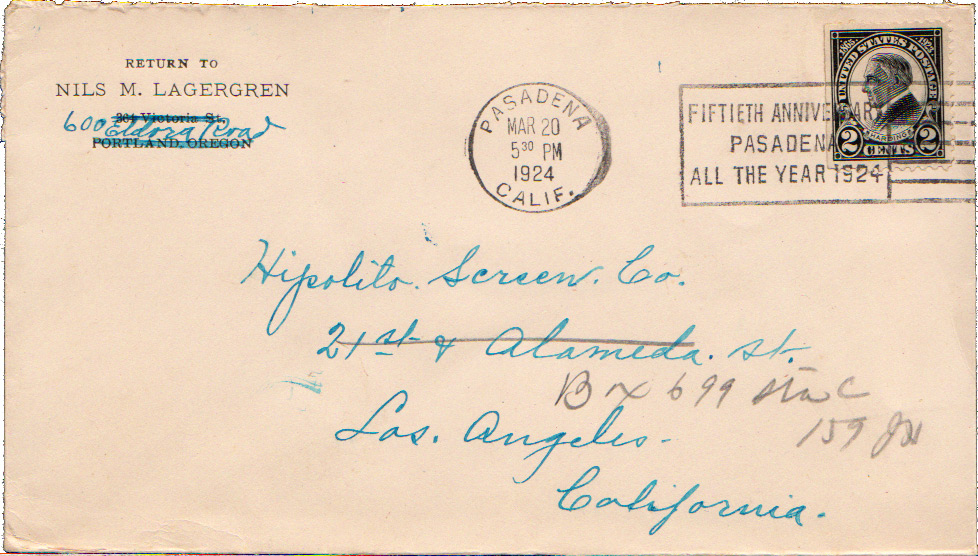 RETURN TO
NILS M. LAGERGREN
364 Victoria St.
600 Eldora Road
PORTLAND, OREGON
PASADENA
MAR 20
5 30 PM
1924
CALIF.
FIFTIETH ANNIVERSARY
PASADENA
ALL THE YEAR 1924
1865 1923
UNITED STATES POSTAGE
HARDING
2 CENTS 2
Hipolito. Screen. Co.
21st & Alameda. St.
Box 699 Sta C
159
Los. Angeles-
California.